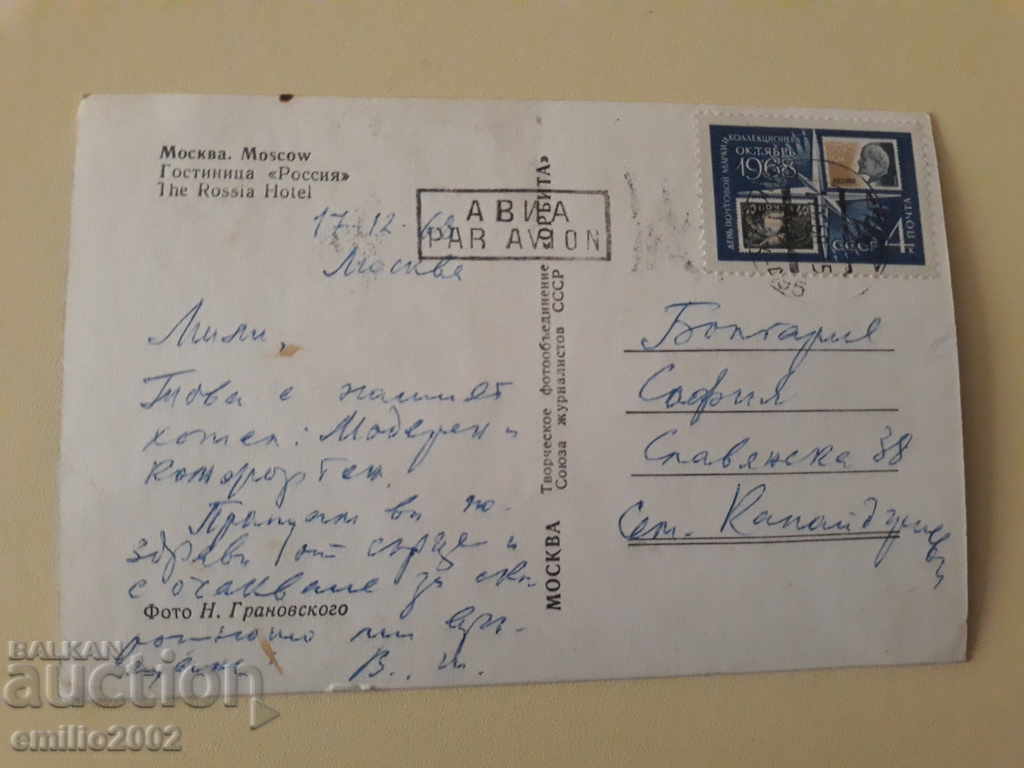 Москва. Moscow
Гостиница «Россия»
The Rossia Hotel
АВИА
PAR AVION
17.12.68
Москва
Мили,
Това е нашият
хотел: Модерен и
комфортен.
Пращам ви по-
здрави от сърце и
с очакване за ско-
рошното ми връ-
щане В. Ш.
Фото Н. Грановского
МОСКВА Творческое фотообъединение «ОРБИТА»
Союза журналистов СССР
ДЕНЬ ПОЧТОВОЙ МАРКИ И КОЛЛЕКЦИОНЕРА
ОКТЯБРЬ
1968
СССР
4К
ПОЧТА
България
София
Славянска 38
Сем.
BALKAN
auction
emilio2002